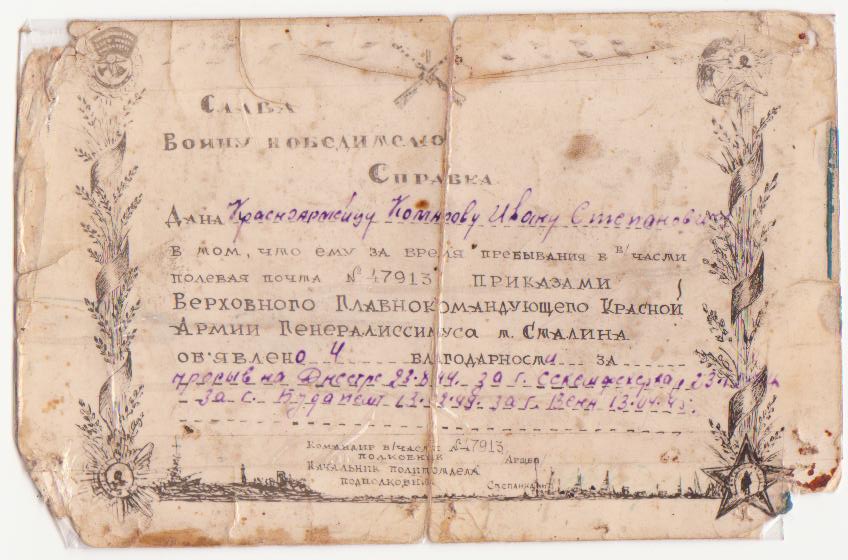 Слава
Воину победителю
Справка
Дана Красноармейцу Комарову Ивану Степановичу
в том, что ему за время пребывания в в/части
полевая почта № 47913 приказами
Верховного Главнокомандующего Красной
Армии Генералиссимуса т. Сталина
об'явлено 4 благодарности за
прорыв на Днестре за г. Секешфехервар
за г. Будапешт за г. Вена 13.04.45г.
Командир в/части № 47913
полковник Аршев
Начальник политотдела
подполковник